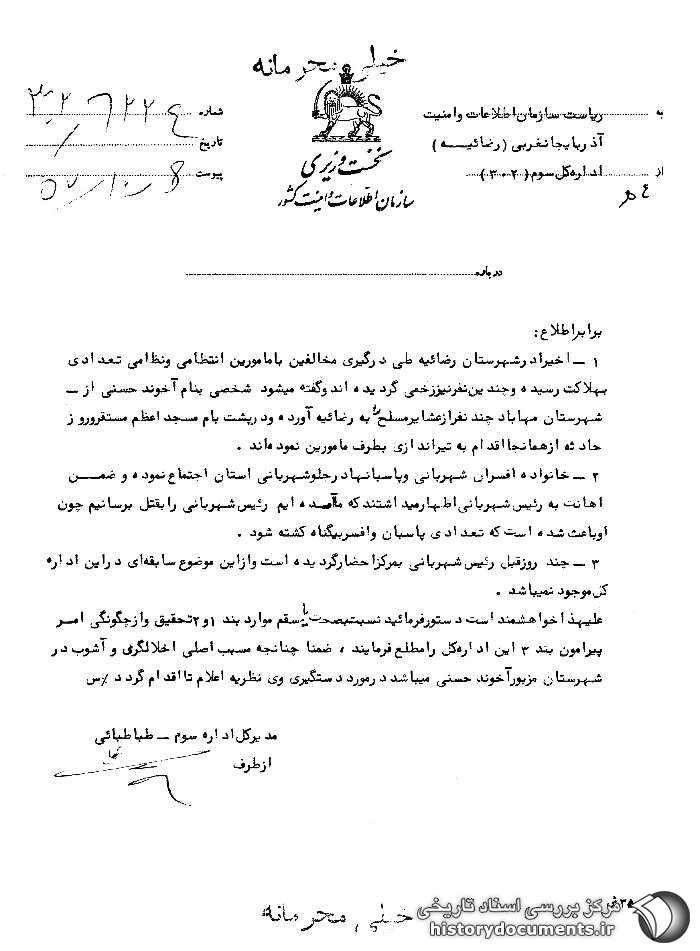 خیلی محرمانه
به ریاست سازمان اطلاعات و امنیت
آذربایجانغربی (رضائیه)
از اداره کل سوم (۳۰۲)
نخست وزیری
سازمان اطلاعات و امنیت کشور
شماره
تاریخ
پیوست ۵۷/۱۰/۸
درباره
برابر اطلاع:
۱ ـ اخیرا در شهرستان رضائیه طی درگیری مخالفین با مامورین انتظامی و نظامی تعدادی
بهلاکت رسیده و چندین نفر نیز زخمی گردیده اند و گفته میشود شخصی بنام آخوند حسنی از ـ
شهرستان مهاباد چند نفر از عشایر مسلح را به رضائیه آورده و در پشت بام مسجد اعظم مستقر و روز
حادثه از همانجا اقدام به تیراندازی بطرف مامورین نموده‌اند .
۲ ـ خانواده افسران شهربانی و پاسبانها در جلو شهربانی استان اجتماع نموده و ضمــن
اهانت به رئیس شهربانی اظهار میداشتند که ما آمده ایم رئیس شهربانی را بقتل برسانیم چون
او باعث شده است که تعدادی پاسبان و افسر بیگناه کشته شود .
۳ ـ چند روز قبل رئیس شهربانی بمرکز احضار گردیده است و از این موضوع سابقه‌ای در این اداره
کل موجود نمیباشد .
علیهذا خواهشمند است دستور فرمائید نسبت بصحت یا سقم موارد بند ۱و۲ تحقیق و از چگونگی امـر
پیرامون بند ۳ این اداره کل را مطلع فرمایند ، ضمنا چنانچه مسبب اصلی اخلالگری و آشوب در
شهرستان مزبور آخوند حسنی میباشد در مورد دستگیری وی نظریه اعلام تا اقدام گردد %س
مدیر کل اداره سوم ـ طباطبائی
از طرف
خیلی محرمانه
مرکز بررسی اسناد تاریخی
historydocuments.ir